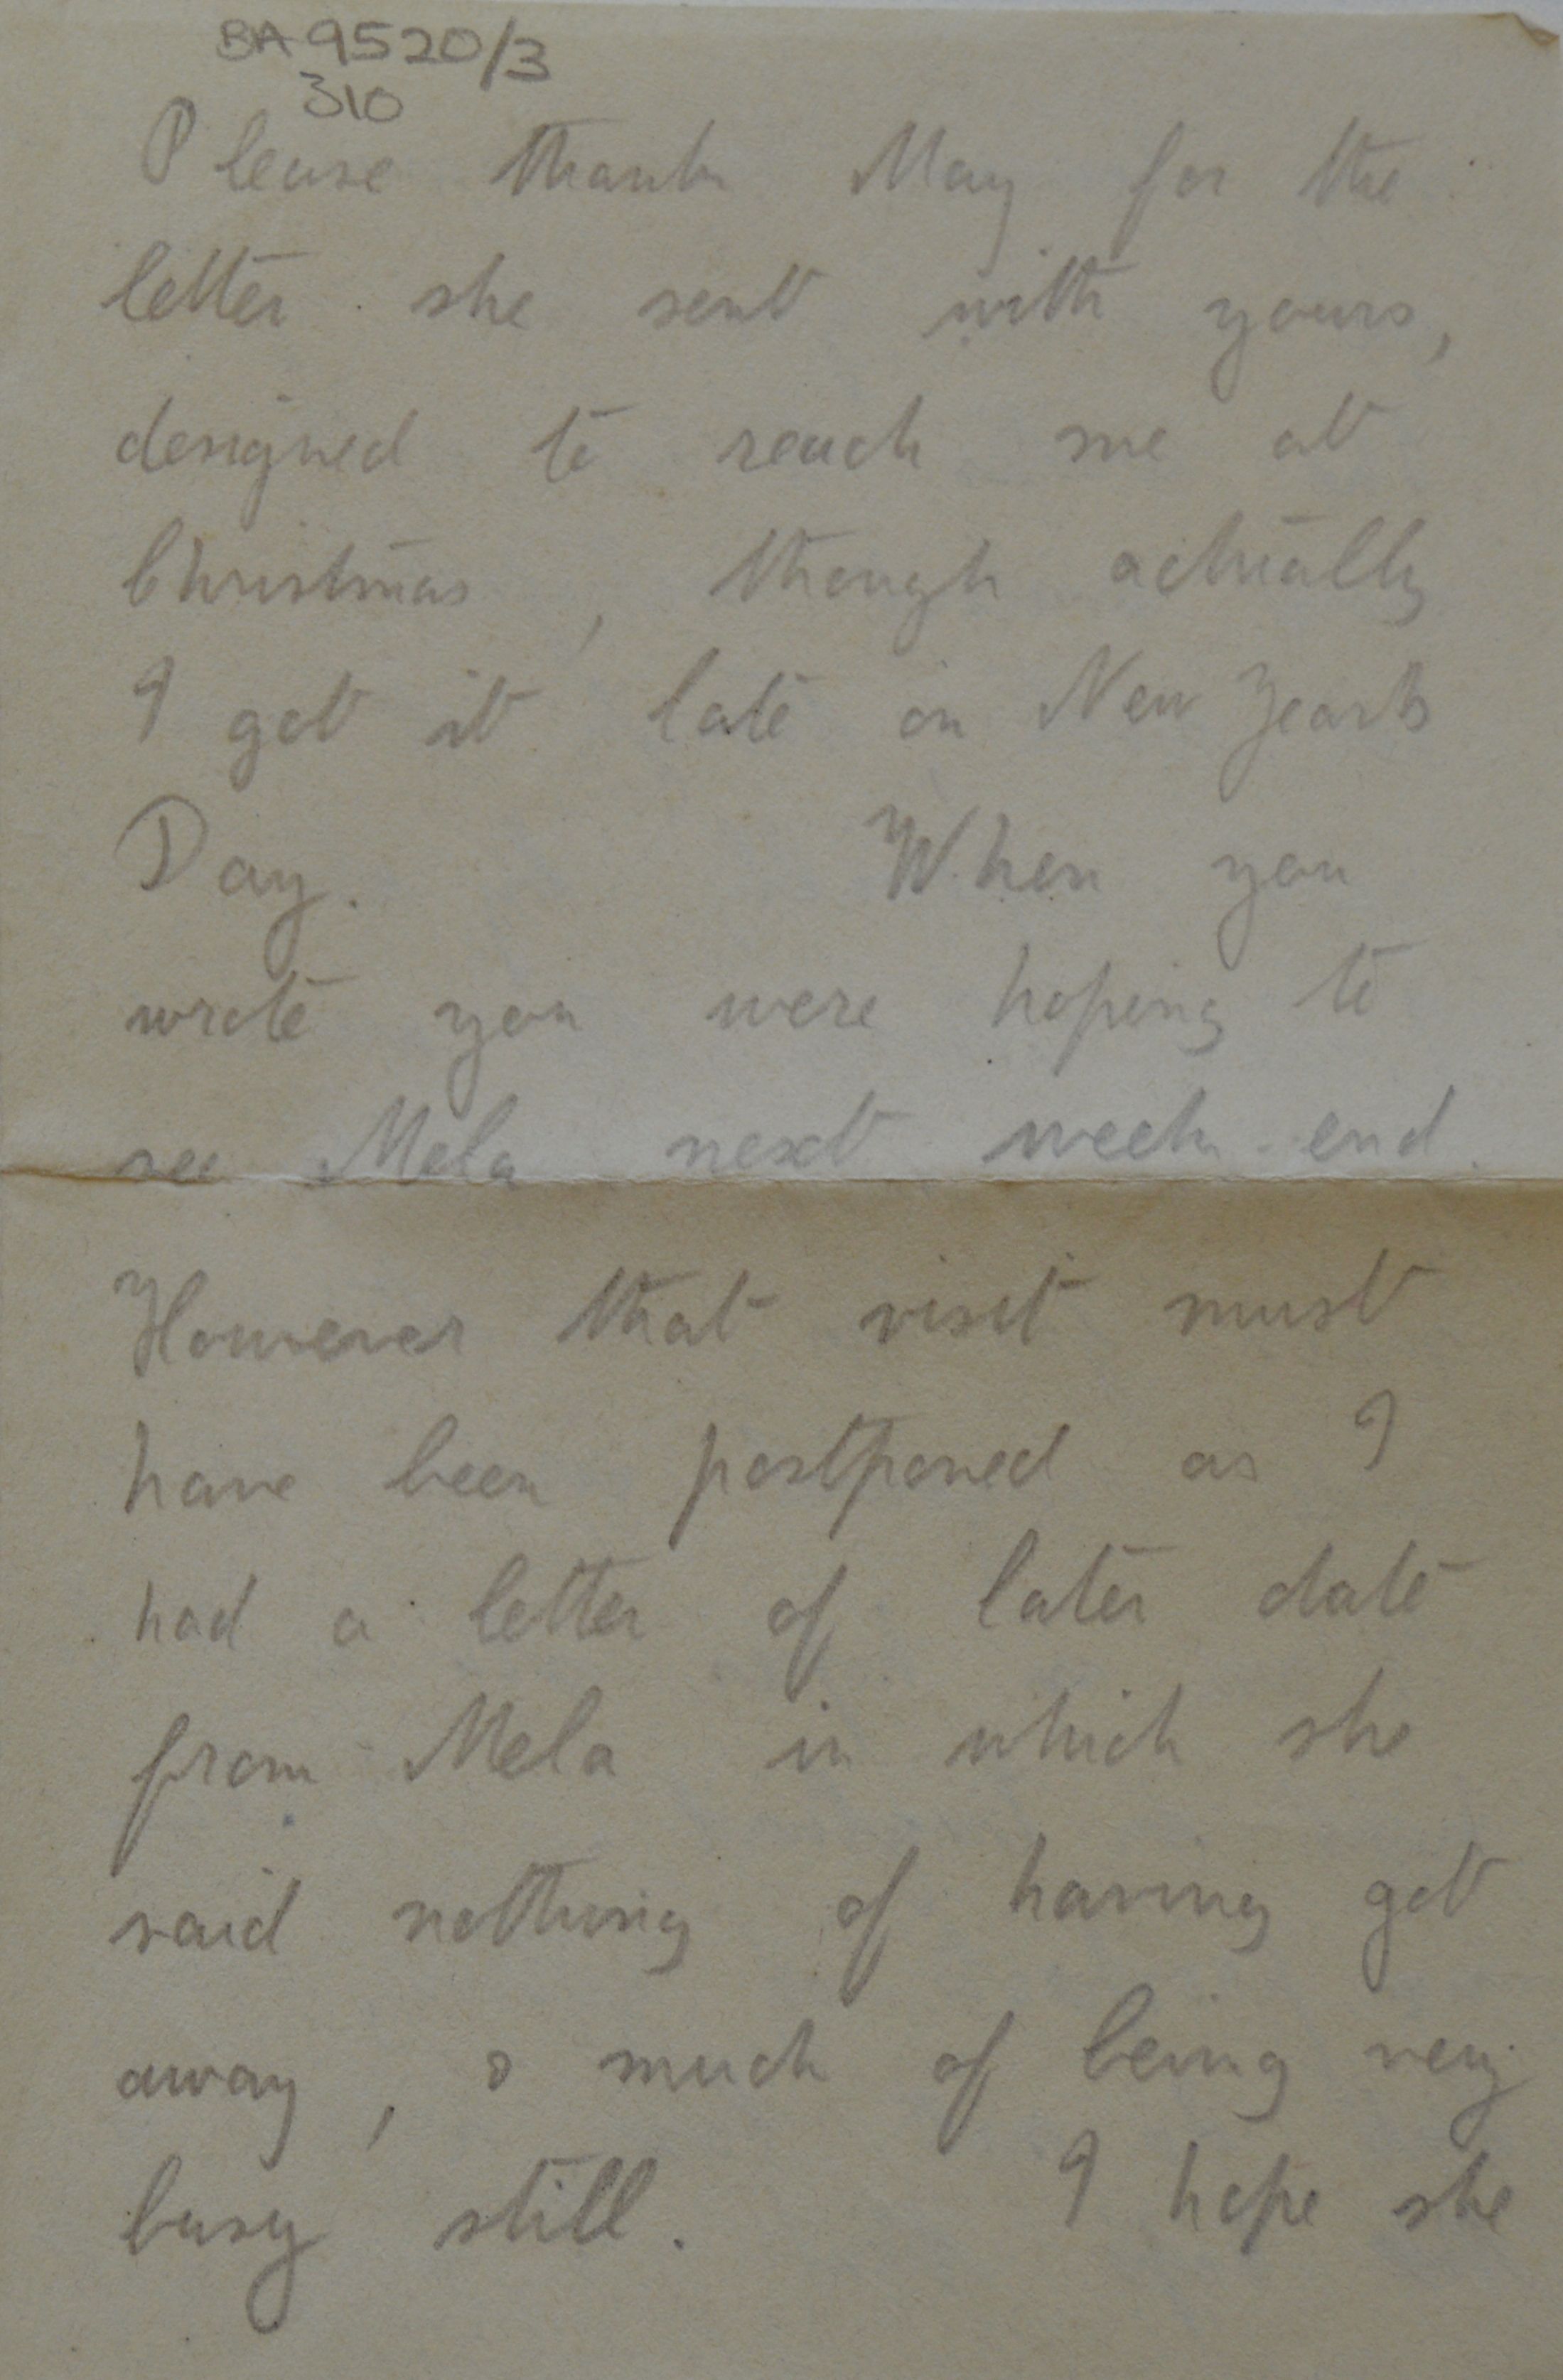 BA 9520/3
310
Please thank May for the
letter she sent with yours,
designed to reach me at
Christmas, though actually
I got it late on New Year's
Day. When you
wrote you were hoping to
see Mela next week-end.
However that visit must
have been postponed as I
had a letter of later date
from Mela in which she
said nothing of having got
away, & much of being very
busy still. I hope she